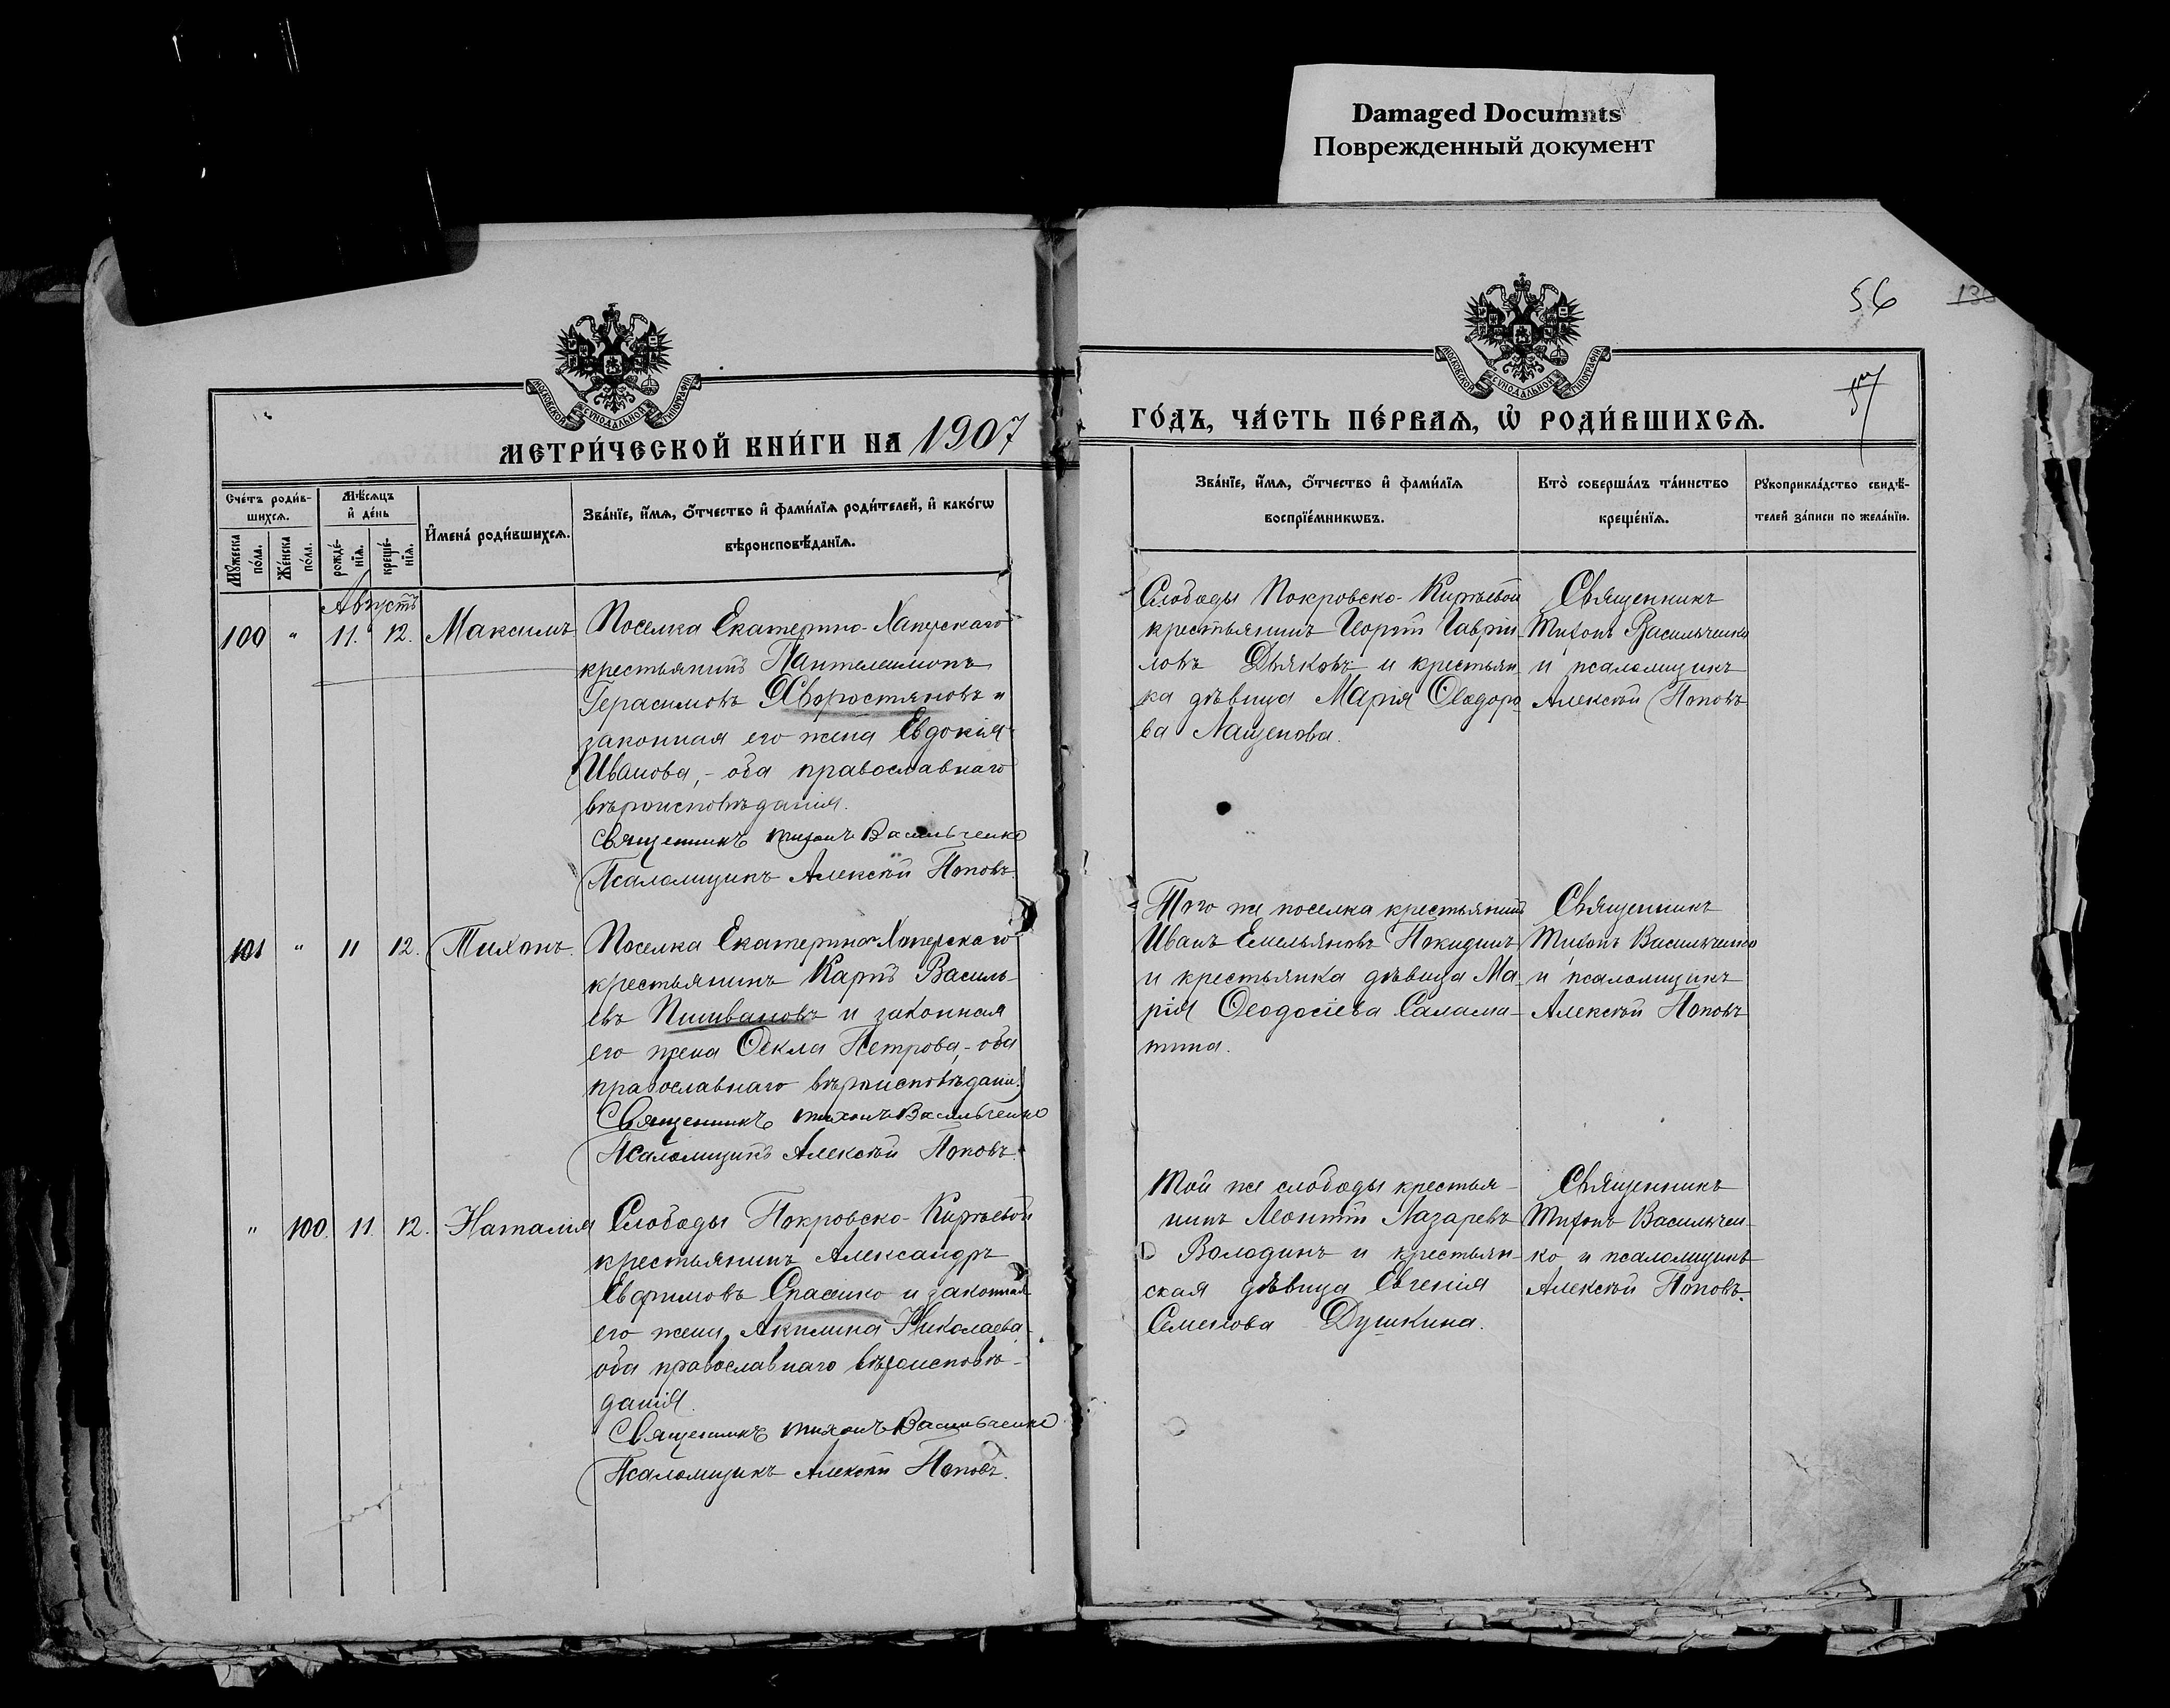 Damaged Documnts
Поврежденный документ
56
57
МОСКОВСКОЙ СѴНОДАЛЬНОЙ ТИПОГРАФІИ
МОСКОВСКОЙ СѴНОДАЛЬНОЙ ТИПОГРАФІИ
МЕТРИ́ЧЕСКОЙ КНИ́ГИ НА 1907
ГО́ДЪ, ЧА́СТЬ ПЕ́РВАѦ, Ѡ҆ РОДИ́ВШИХСѦ.
Сче́тъ роди́в-
шихсѧ.
Мꙋ́жеска по́ла.
Же́нска по́ла.
Мѣ́сѧцъ
и҆ де́нь
рожде́-
нїѧ.
креще́-
нїѧ.
И҆мена̀ роди́вшихсѧ.
Зва́нїе, и҆́мѧ, ѻ҆́тчество и҆ фами́лїѧ роди́телей, и҆ како́гѡ
вѣроисповѣ́данїѧ.
Зва́нїе, и҆́мѧ, ѻ҆́тчество и҆ фами́лїѧ
воспрїе́мникѡвъ.
Кто̀ соверша́лъ та́инство
креще́нїѧ.
Рꙋкоприкла́дство свидѣ́-
телей за́писи по жела́нїю.
Августъ
100 " 11. 12. Максимъ
Поселка Екатерино-Хаперскаго
крестьянинъ Пантелеимонъ
Герасимовъ Хворостяновъ и
законная его жена Евдокія
Иванова,- оба православнаго
вѣроисповѣданія.
Священникъ Тихонъ Васильченко
Псаломщикъ Алексѣй Поповъ.
Слободы Покровско-Кирѣевой
крестьянинъ Георгій Гаврiи-
ловъ Дьяковъ и крестьян-
ка дѣвица Марія Ѳеодоро-
ва Лащенова.
Священникъ
Тихонъ Васильченко
и псаломщикъ
Алексѣй Поповъ
101 " 11 12. Тихонъ.
Поселка Екатерино-Хаперскаго
крестьянинъ Карпъ Василь-
евъ Пиливановъ и законная
его жена Ѳекла Петрова,- оба
православнаго вѣроисповѣданія.
Священникъ Тихонъ Васильченко
Псаломщикъ Алексѣй Поповъ.
Того же поселка крестьянинъ
Иванъ Емельяновъ Покидинъ
и крестьянка дѣвица Ма-
рія Ѳеодосіева Салама-
тина.
Священникъ
Тихонъ Васильченко
и псаломщикъ
Алексѣй Поповъ
" 100. 11. 12. Наталия
Слободы Покровско-Кирѣевой
крестьянинъ Александръ
Евфимовъ Спасенко и законная
его жена Акилина Николаева-
оба православнаго вѣроисповѣ-
данія.
Священникъ Тихонъ Васильченко
Псаломщикъ Алексѣй Поповъ.
Той же слободы крестья-
нинъ Леонтій Лазаревъ
Володинъ и крестьян-
ская дѣвица Евгенія
Семенова Душкина.
Священникъ
Тихонъ Васильчен-
ко и псаломщикъ
Алексѣй Поповъ.